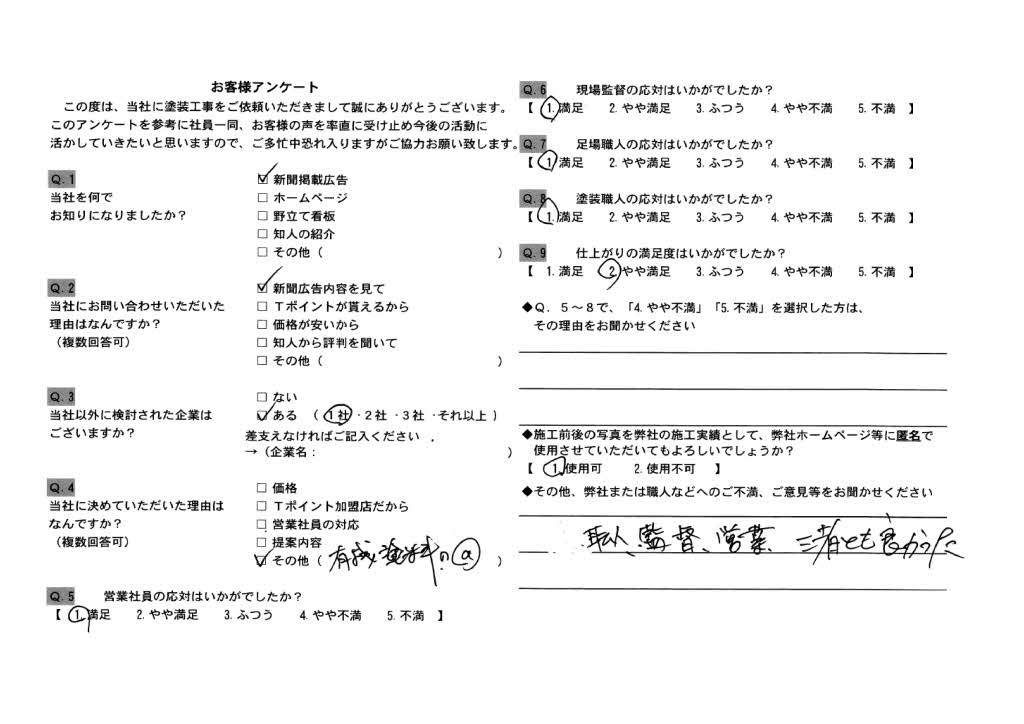 お客様アンケート
この度は、当社に塗装工事をご依頼いただきまして誠にありがとうございます。
このアンケートを参考に社員一同、お客様の声を率直に受け止め今後の活動に
活かしていきたいと思いますので、ご多忙中恐れ入りますがご協力お願い致します。
Q.1 ☑ 新聞掲載広告
当社を何で □ ホームページ
お知りになりましたか? □ 野立て看板
□ 知人の紹介
□ その他 ( )
Q.2 ☑ 新聞広告内容を見て
当社にお問い合わせいただいた □ Tポイントが貰えるから
理由はなんですか? □ 価格が安いから
(複数回答可) □ 知人から評判を聞いて
□ その他 ( )
Q.3 □ ない
当社以外に検討された企業は ☑ ある ( 1社・2社・3社・それ以上 )
ございますか? 差支えなければご記入ください .
→ (企業名: )
Q.4 □ 価格
当社に決めていただいた理由は □ Tポイント加盟店だから
なんですか? □ 営業社員の対応
(複数回答可) □ 提案内容
☑ その他 ( )
Q.5 営業社員の応対はいかがでしたか?
【 1.満足 2.やや満足 3.ふつう 4.やや不満 5.不満 】
Q.6 現場監督の応対はいかがでしたか?
【 1.満足 2.やや満足 3.ふつう 4.やや不満 5.不満 】
Q.7 足場職人の応対はいかがでしたか?
【 1.満足 2.やや満足 3.ふつう 4.やや不満 5.不満 】
Q.8 塗装職人の応対はいかがでしたか?
【 1.満足 2.やや満足 3.ふつう 4.やや不満 5.不満 】
Q.9 仕上がりの満足度はいかがでしたか?
【 1.満足 2.やや満足 3.ふつう 4.やや不満 5.不満 】
◆Q.5~8で、「4.やや不満」「5.不満」を選択した方は、
その理由をお聞かせください
◆施工前後の写真を弊社の施工実績として、弊社ホームページ等に匿名で
使用させていただいてもよろしいでしょうか?
【 1.使用可 2.使用不可 】
◆その他、弊社または職人などへのご不満、ご意見等をお聞かせください
職人、監督、営業 三者とも良かった